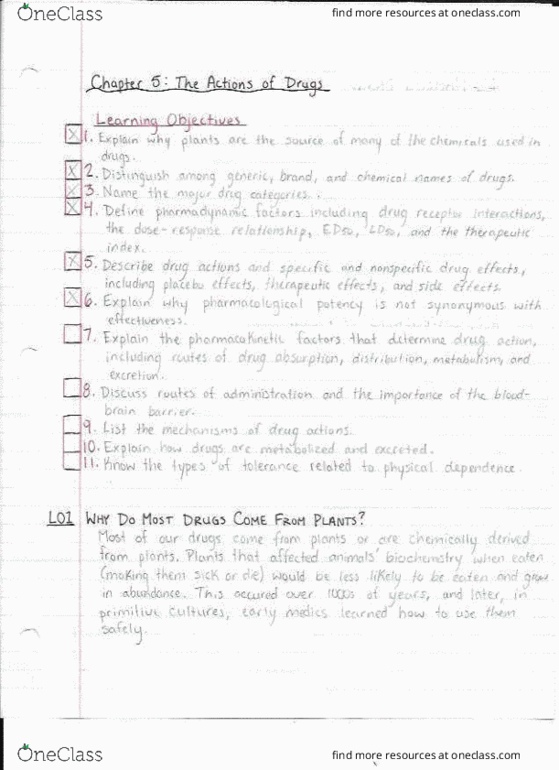 OneClass
find more resources at oneclass.com
Chapter 5: The Actions of Drugs
Learning Objectives
1. Explain why plants are the source of many of the chemicals used in
drugs.
2. Distinguish among generic, brand, and chemical names of drugs.
3. Name the major drug categories.
4. Define pharmadynamic factors including drug receptor interactions,
the dose-response relationship, ED50, LD50, and the therapeutic
index.
5. Describe drug actions and specific and nonspecific drug effects,
including placebo effects, therapeutic effects, and side effects.
6. Explain why pharmacological potency is not synonymous with
effectiveness.
7. Explain the pharmacokinetic factors that determine drug action,
including routes of drug absorption, distribution, metabolism, and
excretion.
8. Discuss routes of administration and the importance of the blood-
brain barrier.
9. List the mechanisms of drug actions.
10. Explain how drugs are metabolized and excreted.
11. Know the types of tolerance related to physical dependence.
LO1 WHY DO MOST DRUGS COME FROM PLANTS?
Most of our drugs come from plants or are chemically derived
from plants. Plants that affected animals' biochemistry when eaten
(making them sick or die) would be less likely to be eaten and grow
in abundance. This occured over 1000s of years, and later, in
primitive cultures, early medics learned how to use them
safely.
OneClass
find more resources at oneclass.com